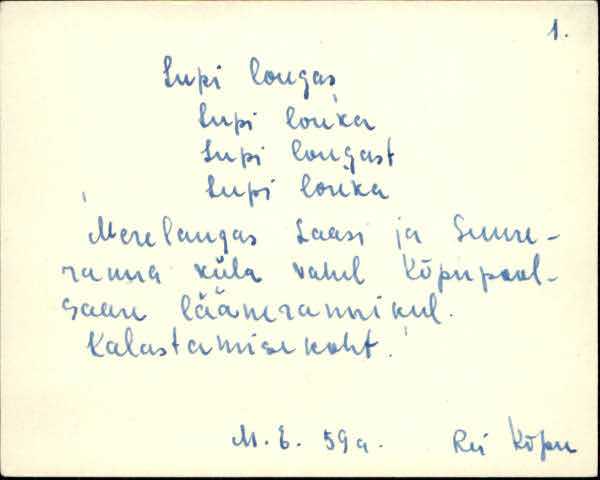 1.
Lupi lougas
Lupi lou'ka
Lupi lougast
Lupi lou'ka
'Merelaugas Laasi ja Suure-
ranna küla vahel Kõpupool-
saare läänerannikul.
Kalastamisekoht.'
M. E. 59a. Rei Kõpu